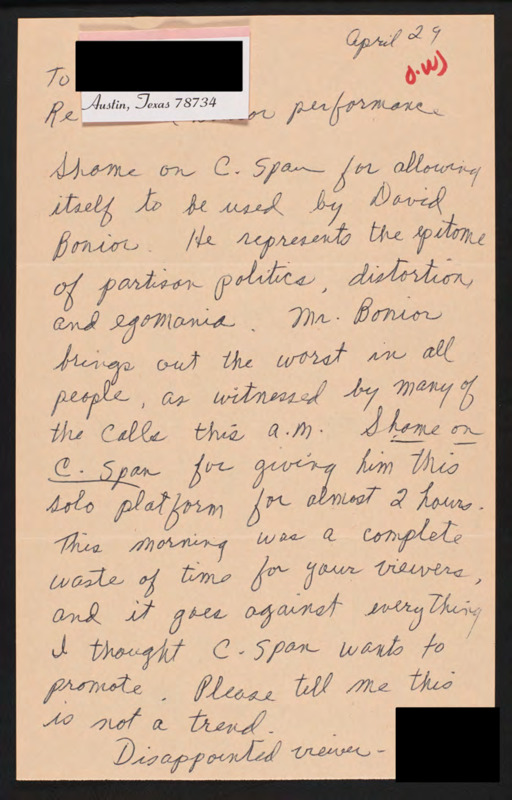 April 29
J.W.
To
Austin, Texas 78734
Re Bonior performance
Shame on C. Span for allowing
itself to be used by David
Bonior. He represents the epitome
of partison politics, distortion,
and egomania. Mr. Bonior
brings out the worst in all
people, as witnessed by many of
the calls this a.m. Shame on
C. Span for giving him this
solo platform for almost 2 hours.
This morning was a complete
waste of time for your viewers,
and it goes against everything
I thought C-Span wants to
promote. Please tell me this
is not a trend.
Disappointed viewer-